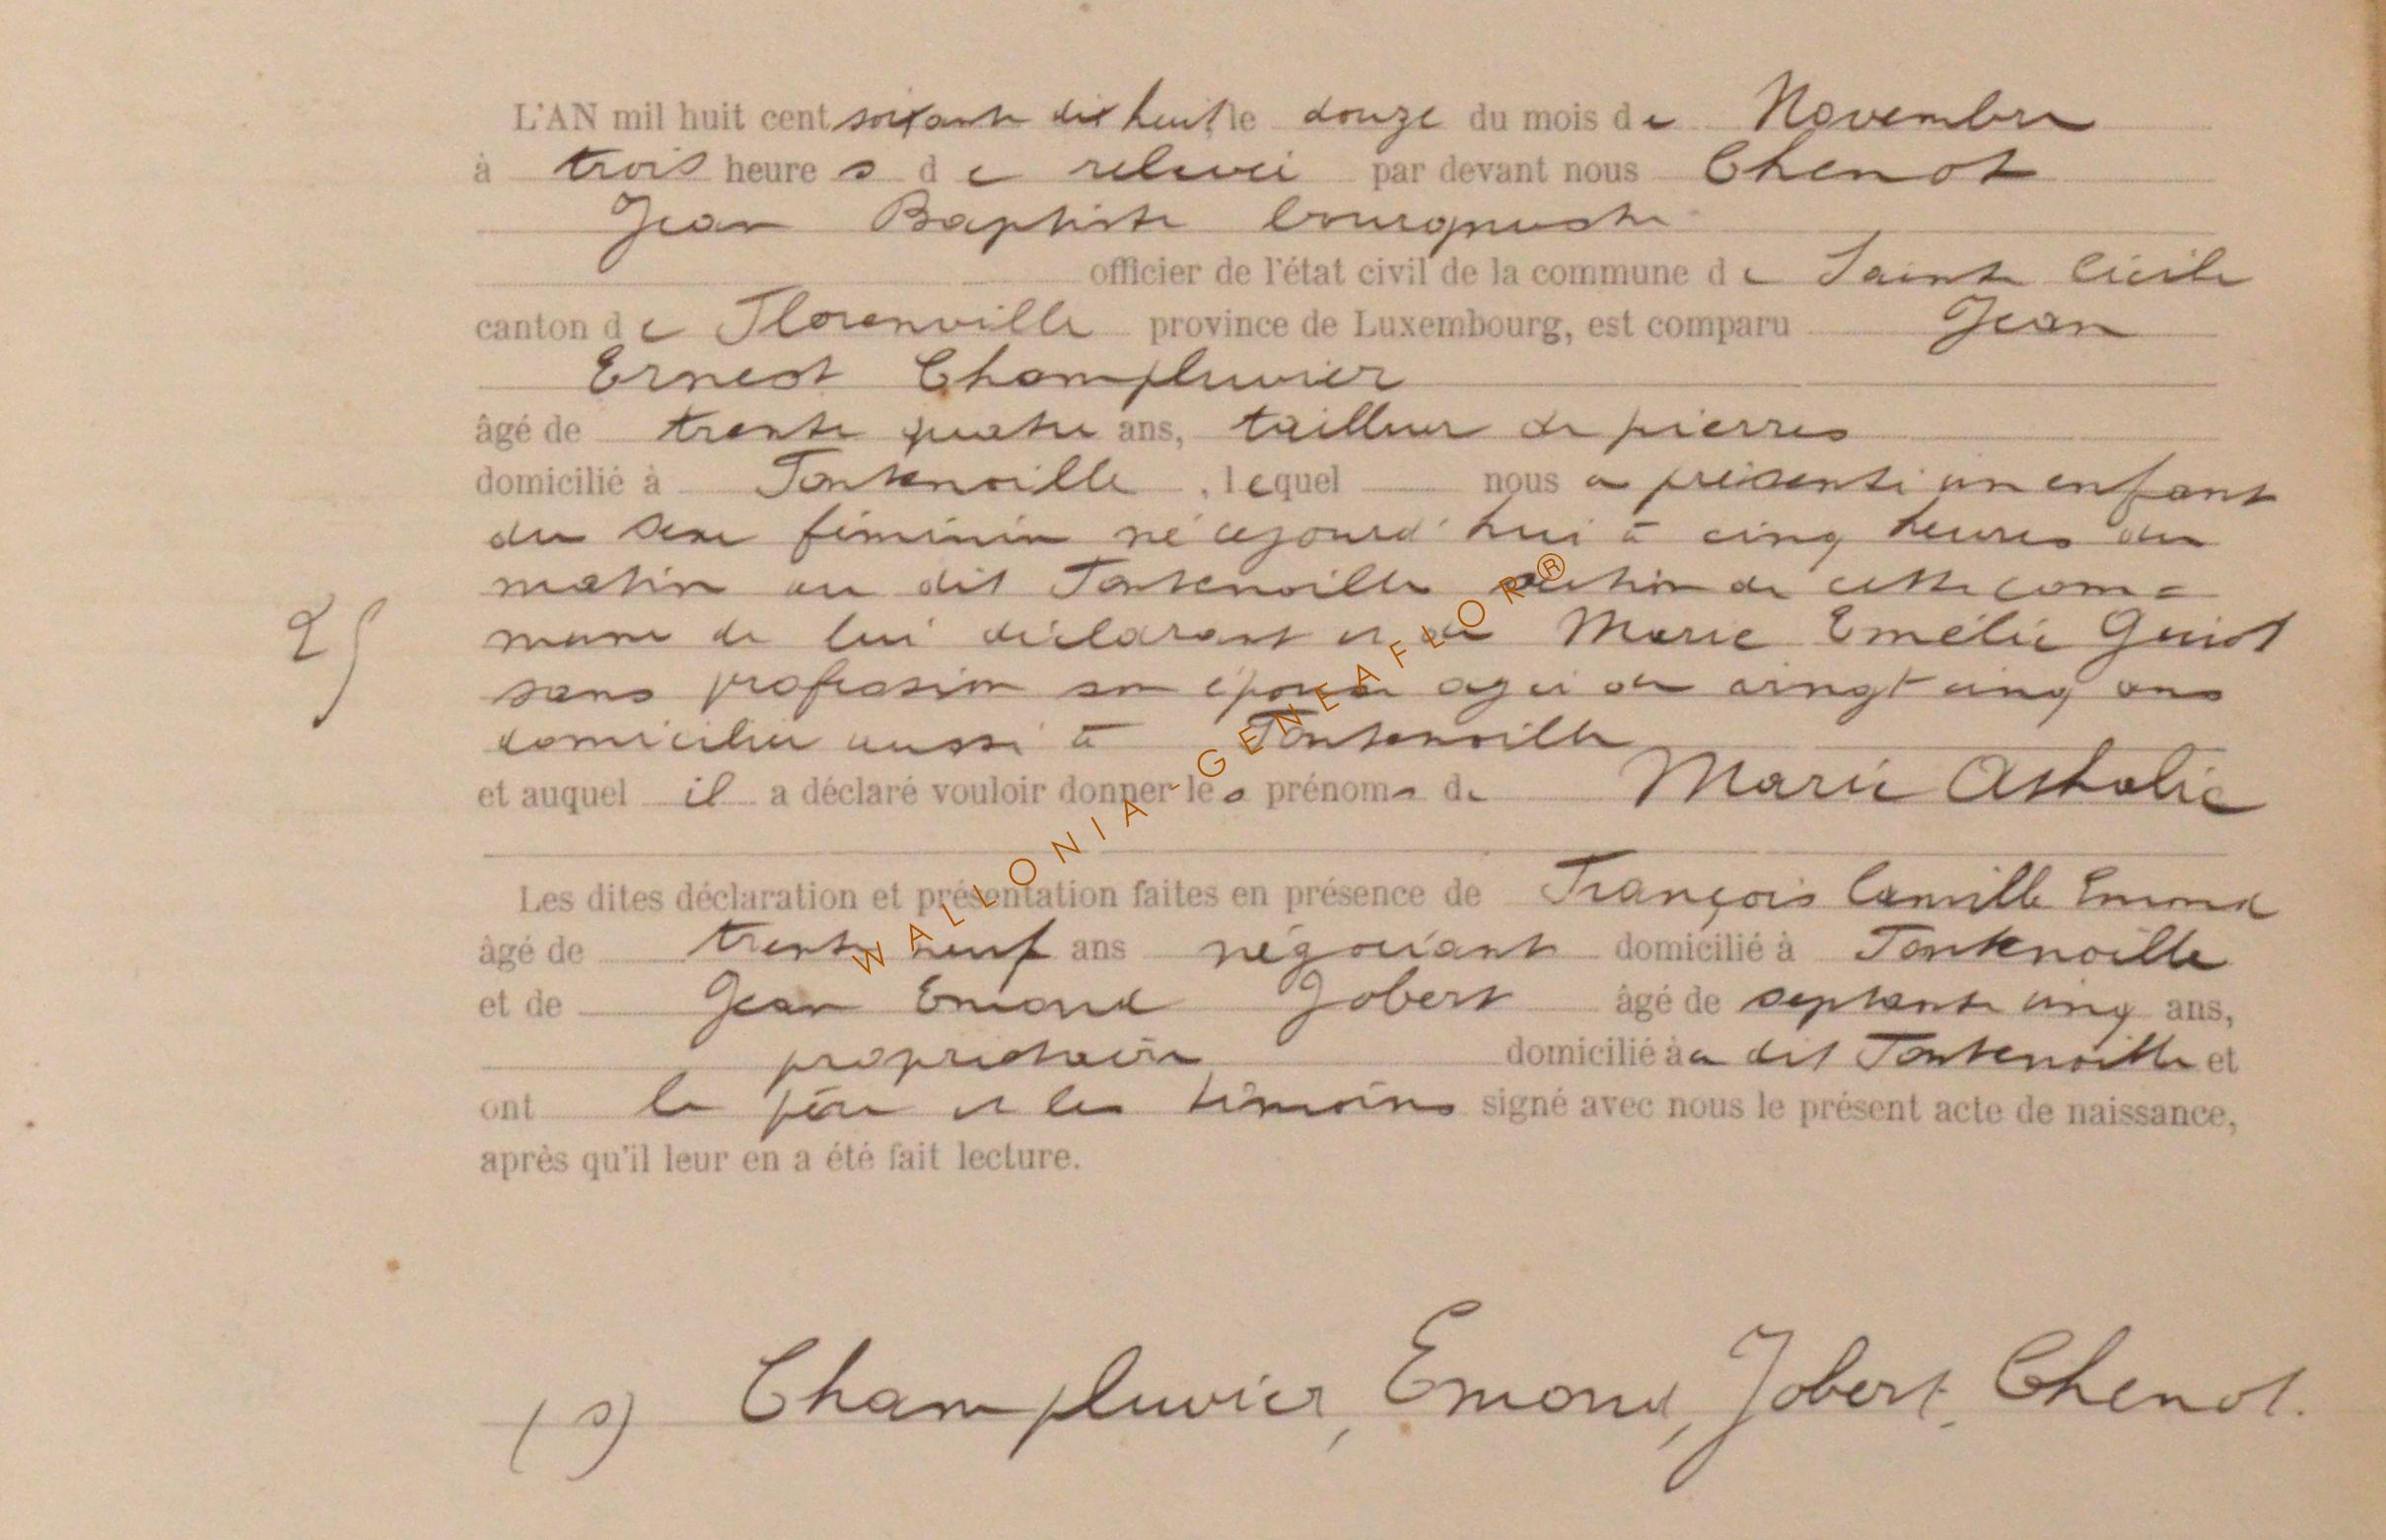 L'AN mil huit cent soixante dix huit le douze du mois de Novembre
à trois heures de relevée par devant nous Chenot
Jean Baptiste bourgmestre
officier de l'état civil de la commune de Sainte Cécile
canton de Florenville province de Luxembourg, est comparu Jean
Ernest Champluvier
âgé de trente quatre ans, tailleur de pierres
domicilié à Fontenoille, lequel nous a présenté un enfant
du sexe féminin né cejourd'hui à cinq heures du
matin au dit Fontenoille section de cette com=
mune de lui déclarant et de Marie Emélie Guiot
sans profession son épouse agée de vingt cinq ans
domiciliée aussi à Fontenoille
et auquel il a déclaré vouloir donner les prénoms de Marie Athalie
Les dites déclaration et présentation faites en présence de François Camille Emond
âgé de trente neuf ans négociant domicilié à Fontenoille
et de Jean Emond Jobert âgé de septante cinq ans,
propriétaire domicilié à a dit Fontenoille et
ont le père et les témoins signé avec nous le présent acte de naissance,
après qu'il leur en a été fait lecture.
25
(s) Champluvier, Emond, Jobert, Chenot.
WALLONIA-GENEAFLOR®